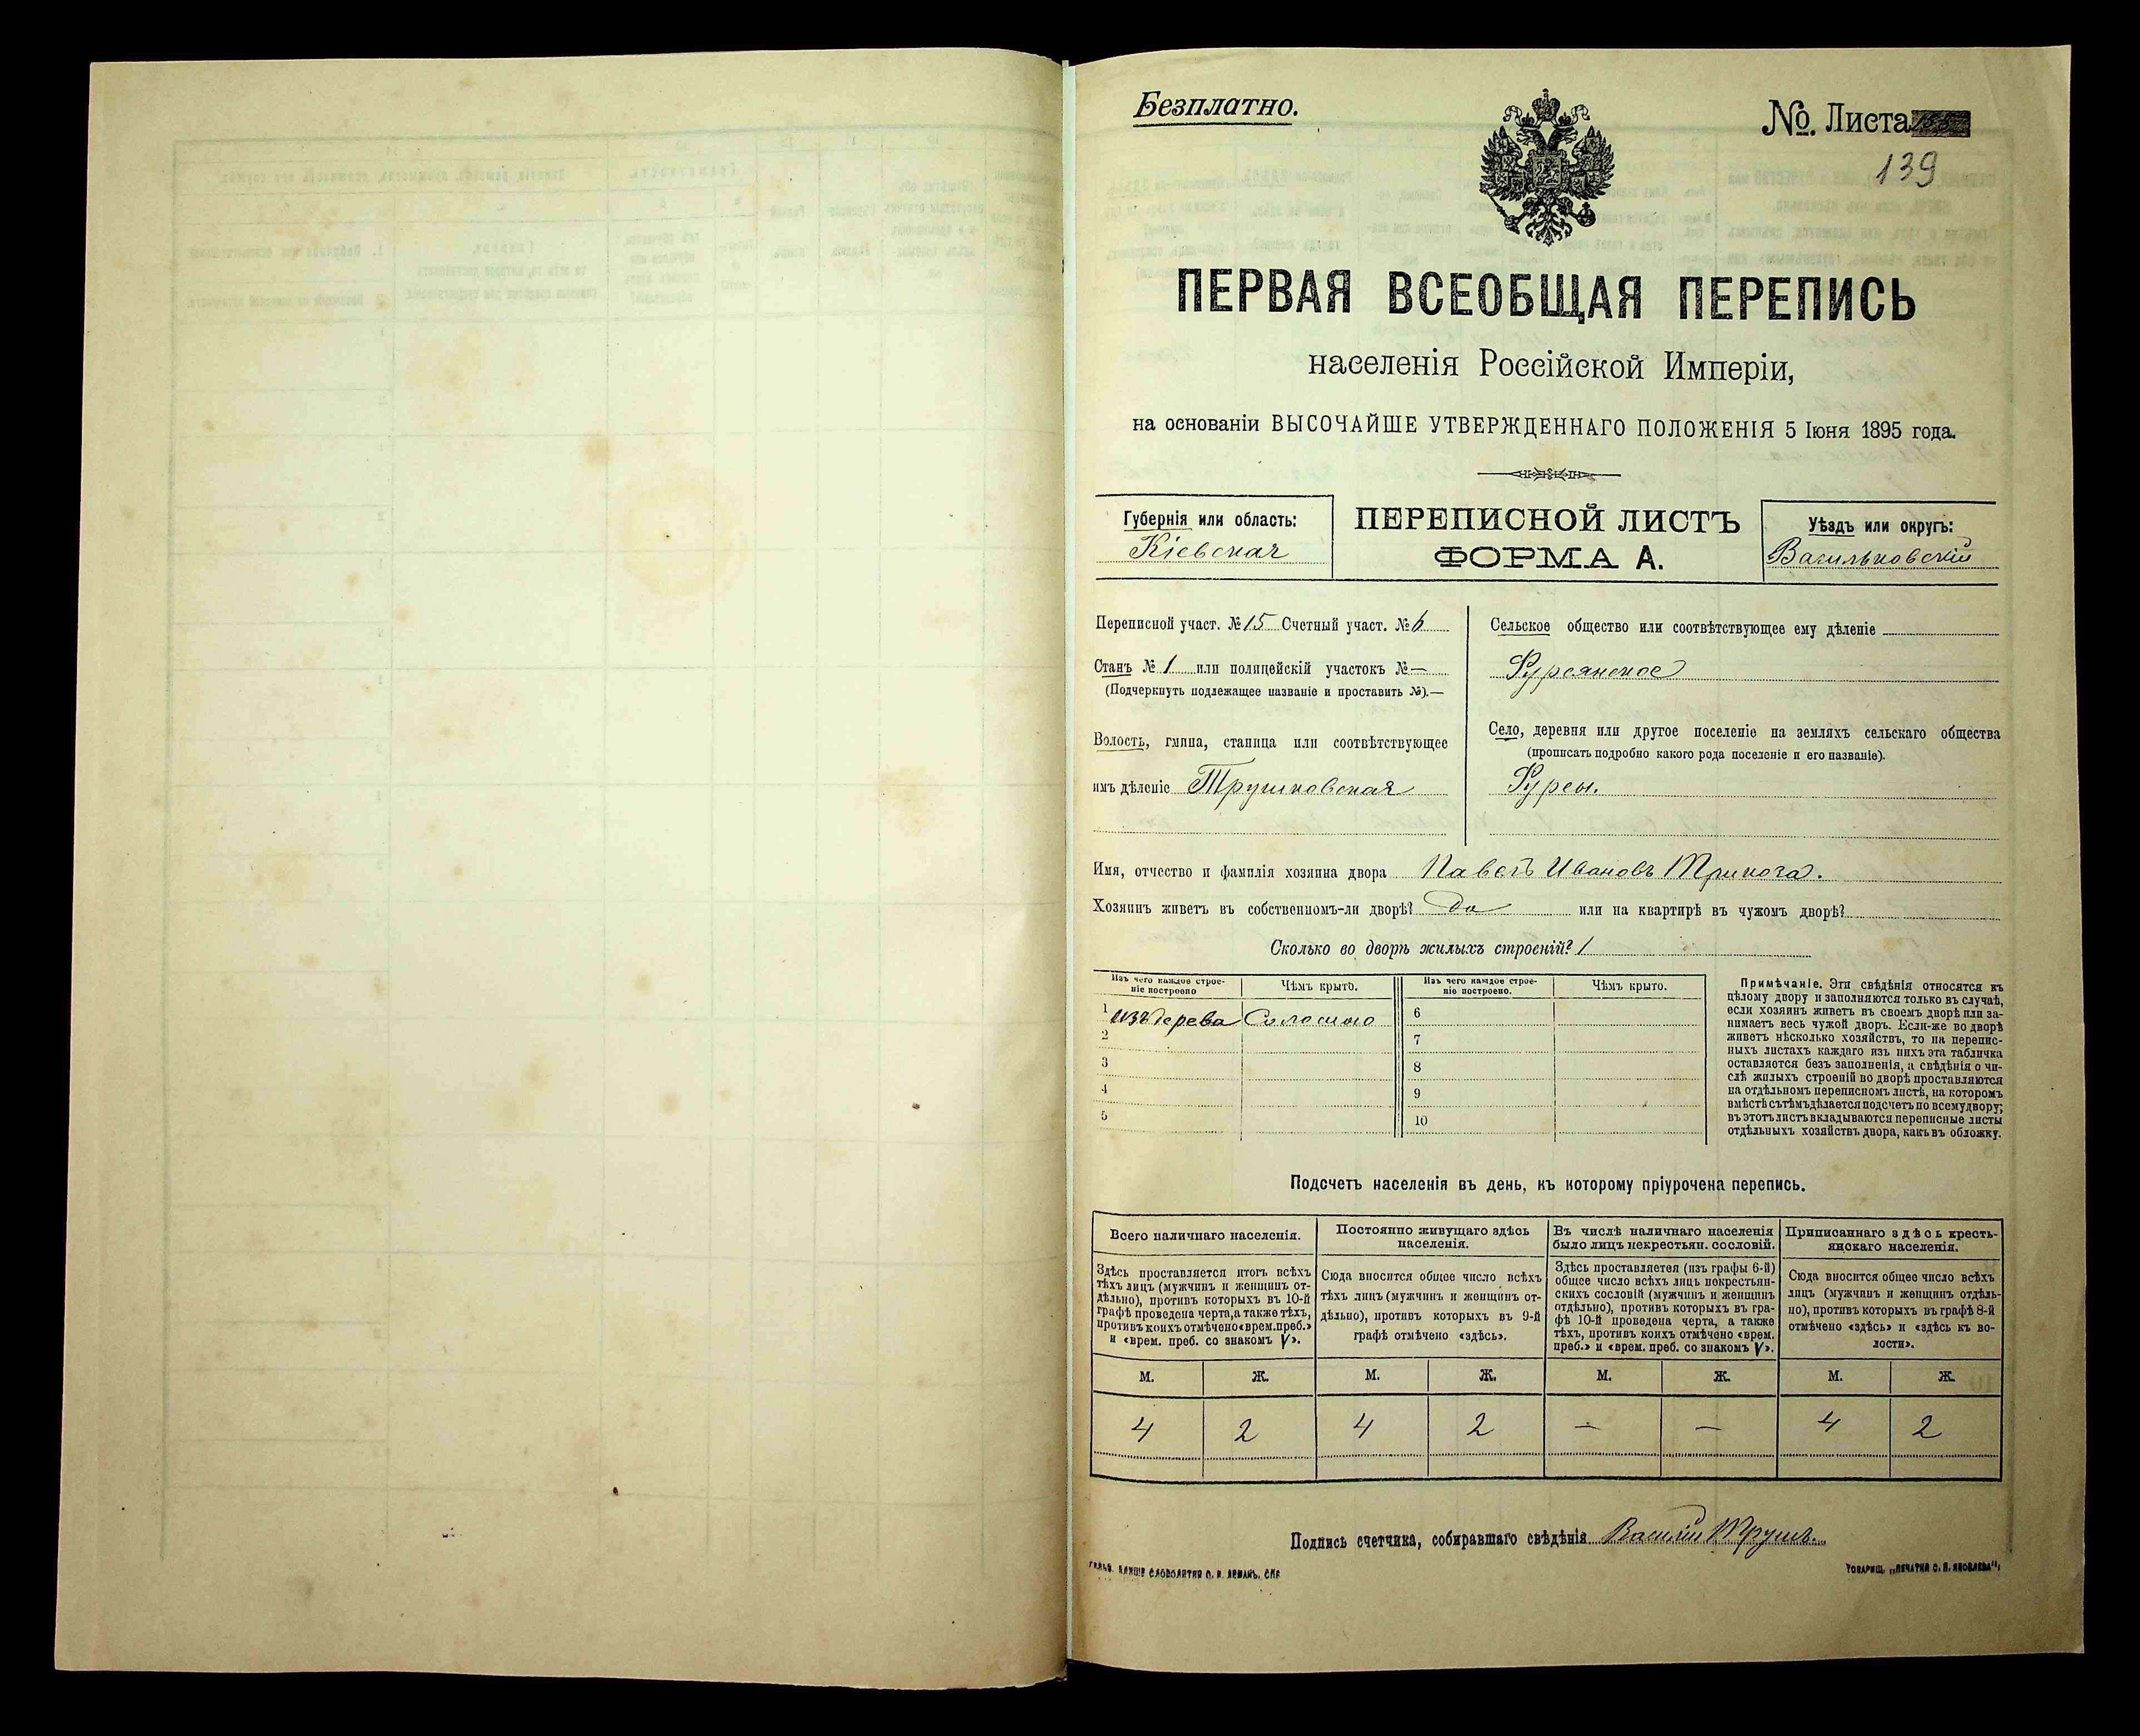 Безплатно.
№. Листа
139
ПЕРВАЯ ВСЕОБЩАЯ ПЕРЕПИСЬ
населенія Россійской Имперіи,
на основаніи ВЫСОЧАЙШЕ УТВЕРЖДЕННАГО ПОЛОЖЕНІЯ 5 Іюня 1895 года.
Губернія или область:
Кіевская
ПЕРЕПИСНОЙ ЛИСТЪ
ФОРМА А.
Уѣздъ или округъ:
Васильковскій
Переписной участ. № 15 Счетный участ. № 6
Станъ № 1 или полицейскій участокъ № —
(Подчеркнуть подлежащее названіе и проставить №).—
Волость, гмина, станица или соотвѣтствующее
имъ дѣленіе Трушковская
Сельское общество или соотвѣтствующее ему дѣленіе
Фурсянское
Село, деревня или другое поселеніе на земляхъ сельскаго общества
(прописать подробно какого рода поселеніе и его названіе).
Фурсы.
Имя, отчество и фамилія хозяина двора Павелъ Ивановъ Тринога.
Хозяинъ живетъ въ собственномъ-ли дворѣ? да или на квартирѣ въ чужомъ дворѣ?
Сколько во дворѣ жилыхъ строеній? 1
Изъ чего каждое строе-
ніе построено
Чѣмъ крыто.
Изъ чего каждое строе-
ніе построено.
Чѣмъ крыто.
1 изъ дерева Соломою 6
2 7
3 8
4 9
5 10
Примѣчаніе. Эти свѣдѣнія относятся къ
цѣлому двору и заполняются только въ случаѣ,
если хозяинъ живетъ въ своемъ дворѣ или за-
нимаетъ весь чужой дворъ. Если-же во дворѣ
живетъ нѣсколько хозяйствъ, то на перепис-
ныхъ листахъ каждаго изъ нихъ эта табличка
оставляется безъ заполненія, а свѣдѣнія о чи-
слѣ жилыхъ строеній во дворѣ проставляются
на отдѣльномъ переписномъ листѣ, на которомъ
вмѣстѣ съ тѣмъ дѣлается подсчетъ по всему двору;
въ этотъ листъ вкладываются переписные листы
отдѣльныхъ хозяйствъ двора, какъ въ обложку.
Подсчетъ населенія въ день, къ которому пріурочена перепись.
Всего наличнаго населенія.
Постоянно живущаго здѣсь
населенія.
Въ числѣ наличнаго населенія
было лицъ некрестьян. сословій.
Приписаннаго здѣсь кресть-
янскаго населенія.
Здѣсь проставляется итогъ всѣхъ
тѣхъ лицъ (мужчинъ и женщинъ от-
дѣльно), противъ которыхъ въ 10-й
графѣ проведена черта, а также тѣхъ,
противъ коихъ отмѣчено «врем. преб.»
и «врем. преб. со знакомъ V».
Сюда вносится общее число всѣхъ
тѣхъ лицъ (мужчинъ и женщинъ от-
дѣльно), противъ которыхъ въ 9-й
графѣ отмѣчено «здѣсь».
Здѣсь проставляется (изъ графы 6-й)
общее число всѣхъ лицъ некрестьян-
скихъ сословій (мужчинъ и женщинъ
отдѣльно), противъ которыхъ въ гра-
фѣ 10-й проведена черта, а также
тѣхъ, противъ коихъ отмѣчено «врем.
преб.» и «врем. преб. со знакомъ V».
Сюда вносится общее число всѣхъ
лицъ (мужчинъ и женщинъ отдѣль-
но), противъ которыхъ въ графѣ 8-й
отмѣчено «здѣсь» и «здѣсь къ во-
лости».
М. Ж. М. Ж. М. Ж. М. Ж.
4 2 4 2 — — 4 2
Подпись счетчика, собиравшаго свѣдѣнія Василій Трушъ.
СЛОВОЛИТНЯ О. И. ЛЕМАНЪ, СПБ
ТОВАРИЩ. „ПЕЧАТНЯ С. П. ЯКОВЛЕВА“